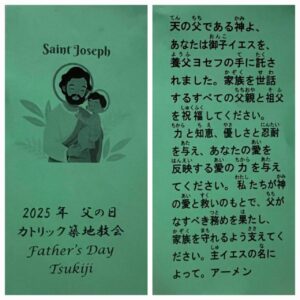 Saint Joseph
2025年 父の日
カトリック築地教会
Father's Day
Tsukiji
天の父である神よ、
あなたは御子イエスを、
養父ヨセフの手に託さ
れました。家族を世話
するすべての父親と祖父
を祝福してください。
力と知恵、優しさと忍耐
を与え、あなたの愛を
反映する愛の力を与え
てください。私たちが神
の愛と救いのもとで、父が
なすべき務めを果たし、
家族を守れるよう支えてく
ださい。主イエスの名に
よって。アーメン